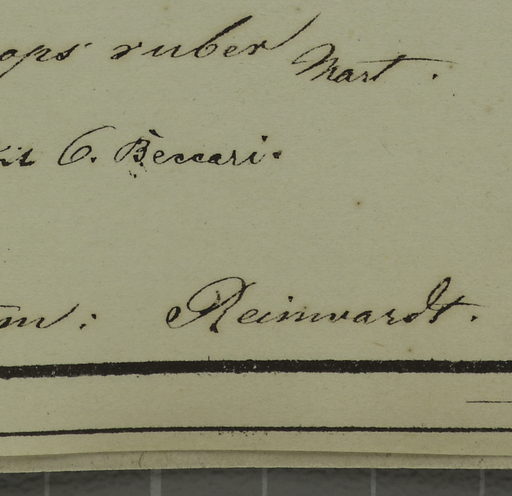 ops ruber Mart.
it O. Beccari.
m: Reinwardt.